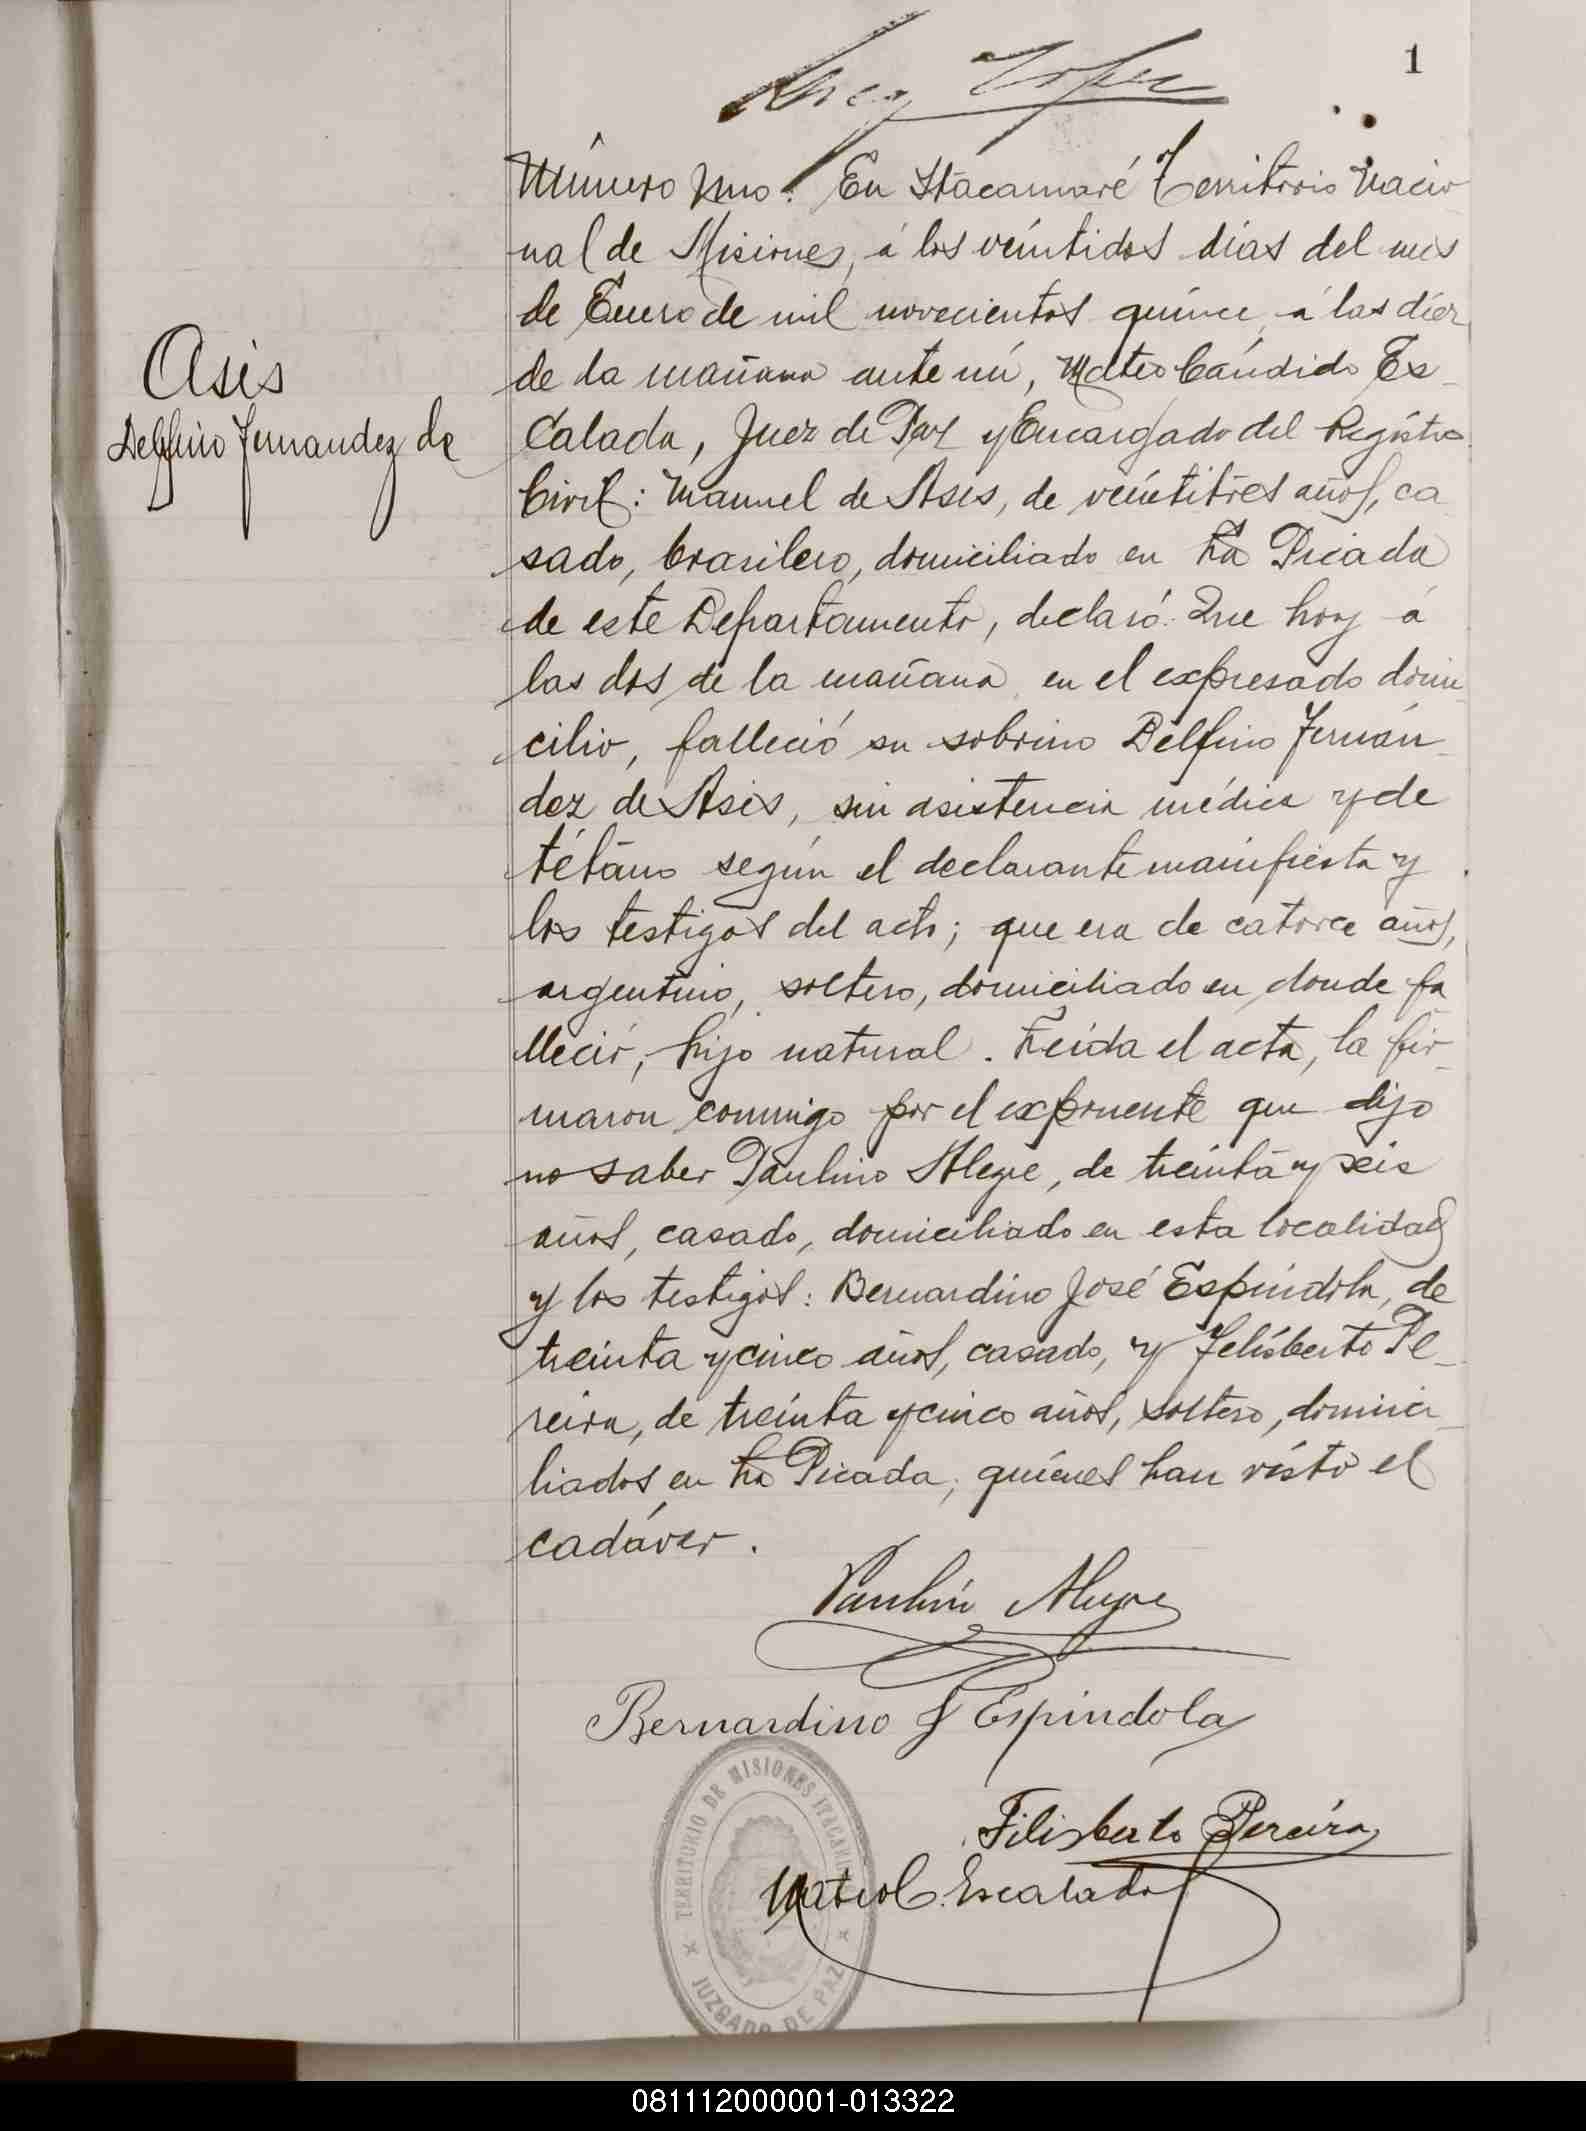 1
Número Uno. En Itacaruaré Territorio Nacio
nal de Misiones, á los veíntidos días del mes
de Enero de mil novecientos quínce, á las díez
de la mañana ante mí, Mateo Cándido Es-
calada, Juez de Paz y Encargado del Regístro
Civil: Manuel de Asis, de veíntitres años, ca
sado, brasilero, domiciliado en La Picada
de este Departamento, declaró: Que hoy á
las dos de la mañana en el expresado domi-
cilio, falleció su sobrino Delfino Fernán-
dez de Asis, sin asistencia médica y de
tétano según el declarante manifiesta y
los testigos del acto; que era de catorce años,
argentino, soltero, domiciliado en donde fa
lleció, hijo natural. Leída el acta, la fir-
maron conmigo por el exponente que dijo
no saber Paulino Alegre, de treínta y seis
años, casado, domiciliado en esta localidad
y los testigos: Bernardino José Espíndola, de
treinta y cinco años, casado, y Felísberto Pe-
reira, de treínta y cinco años, soltero, domici-
liados en La Picada, quíenes han vísto el
cadáver.
Asis
Delfino Fernandez de
Paulino Alegre
Bernardino J Espindola
Filisberto Pereira
Mateo C. Escalada
TERRITORIO DE MISIONES
JUZGADO DE PAZ
081112000001-013322